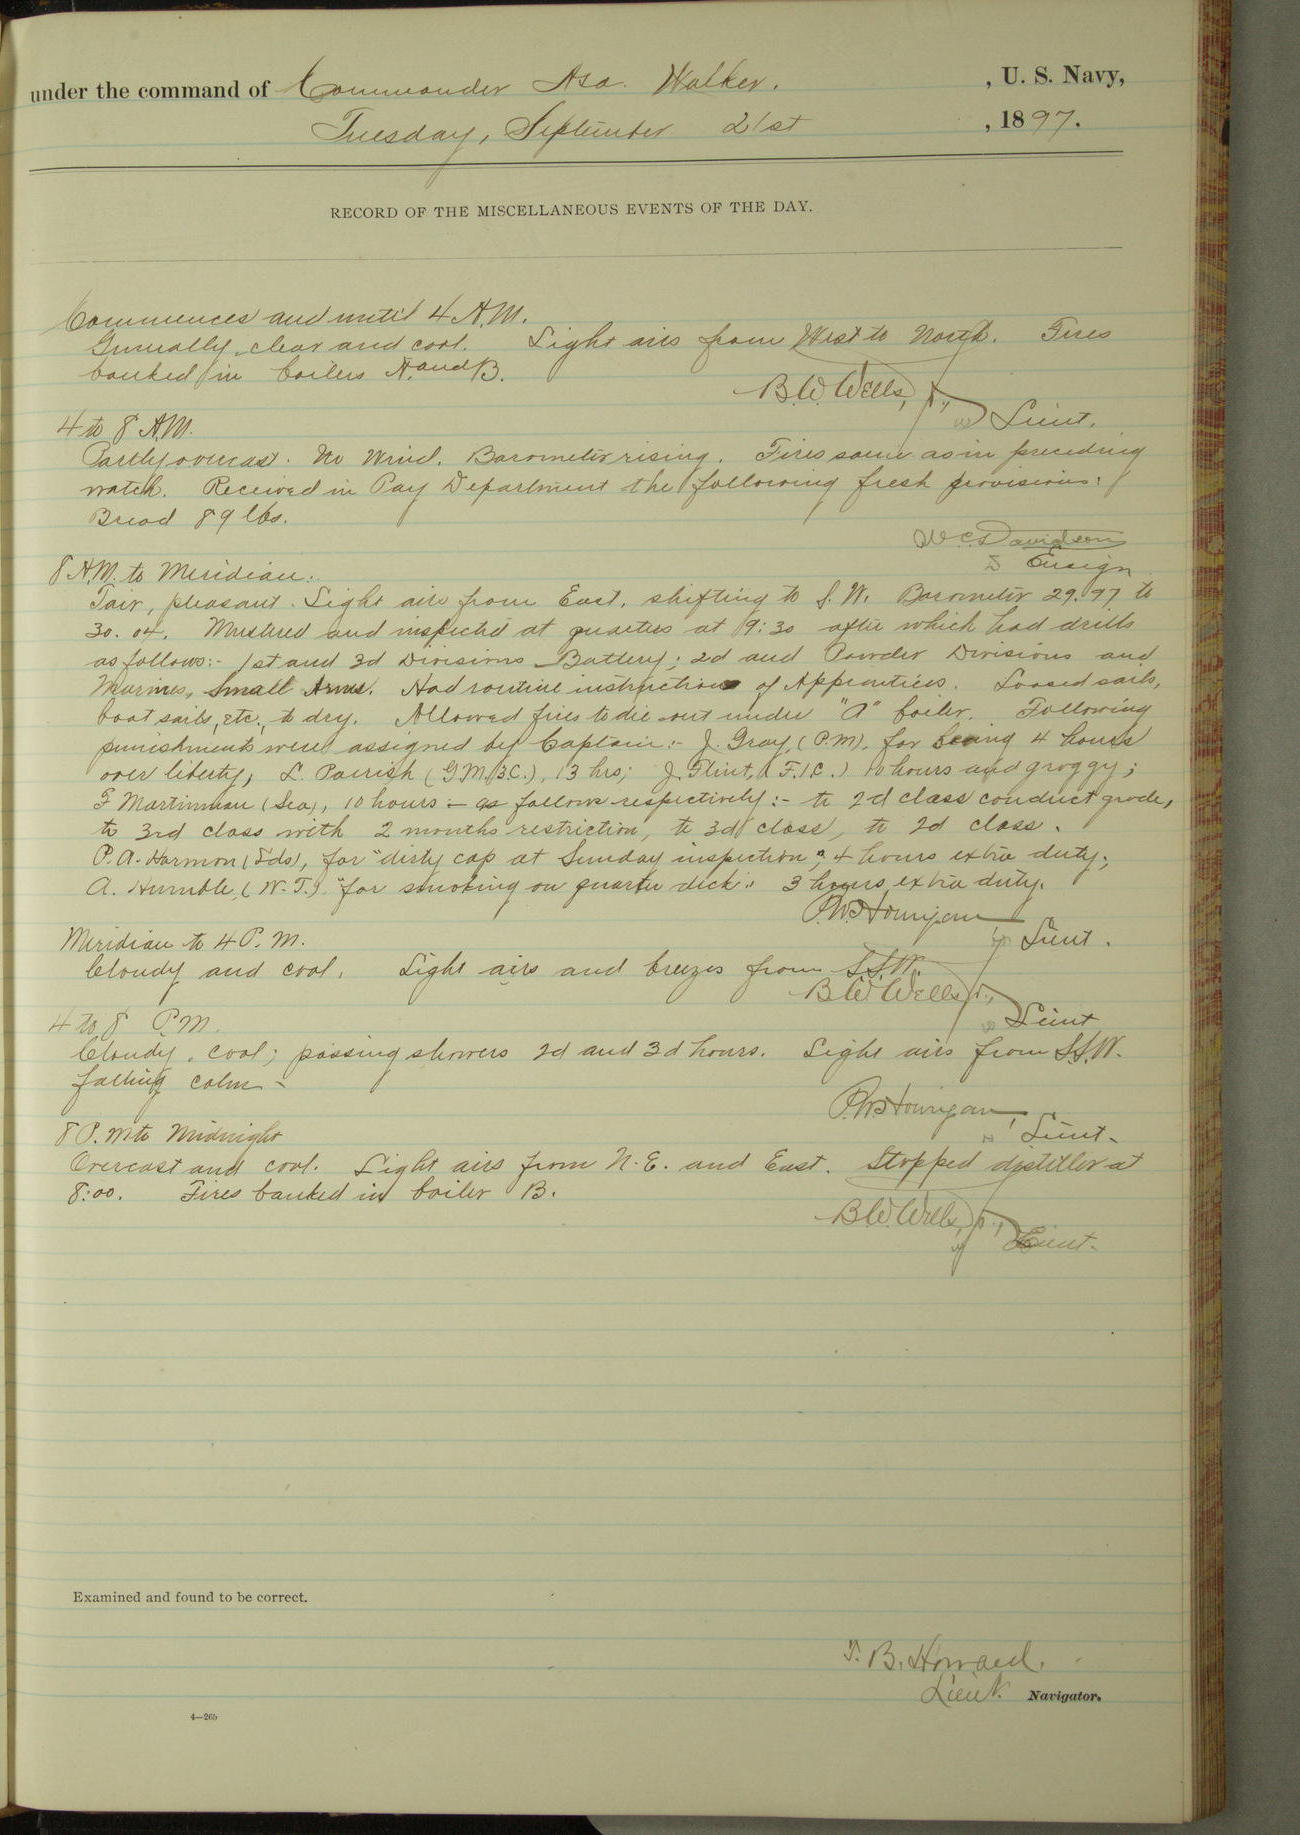 under the command of Commander Asa Walker. , U. S. Navy,
Tuesday, September 21st , 1897.
RECORD OF THE MISCELLANEOUS EVENTS OF THE DAY.
Commences and until 4 A.M.
Generally clear and cool. Light airs from West to North. Fires
banked in boilers A. and B.
B.W. Wells, Jr.,
Lieut.
4 to 8 A.M.
Partly overcast. No Wind. Barometer rising. Fires same as in preceding
watch. Received in Pay Department the following fresh provisions:
Bread 89 lbs.
W.C. Davidson
Ensign
8 A.M. to Meridian:
Fair, pleasant. Light airs from East, shifting to S.W. Barometer 29.97 to
30.04. Mustered and inspected at quarters at 9:30 after which had drills
as follows:- 1st and 3d Divisions Battery; 2d and Powder Divisions and
Marines, Small Arms. Had routine instructions of Apprentices. Loosed sails,
boat sails, etc., to dry. Allowed fires to die out under "A" boiler. Following
punishments were assigned by Captain:- J. Gray, (P.M). for being 4 hours
over liberty, L. Parrish (G.M.3.C.), 13 hrs; J. Flint, (F.1C.) 10 hours and groggy;
F Martinman (Sea), 10 hours:- as follows respectively:- to 2d class conduct grade,
to 3rd class with 2 months restriction, to 3d class, to 2d class.
P.A. Harmon (Lds), for "dirty cap at Sunday inspection", 4 hours extra duty;
A. Humble, (W.T.) "for smoking on quarter deck." 3 hours extra duty.
P.W. Hourigan
Lieut.
Meridian to 4 P.M.
Cloudy and cool. Light airs and breezes from S.S.W.
B.W. Wells Jr.,
Lieut
4 to 8 P.M.
Cloudy, cool; passing showers 2d and 3d hours. Light airs from S.S.W.
falling calm -
P.W. Hourigan,
Lieut.
8 P.M to Midnight
Overcast and cool. Light airs from N.E. and East. Stopped distiller at
8:00. Fires banked in boiler B.
B.W. Wells, Jr.,
Lieut.
Examined and found to be correct.
T. B. Howard.
Lieut. Navigator.
4—265